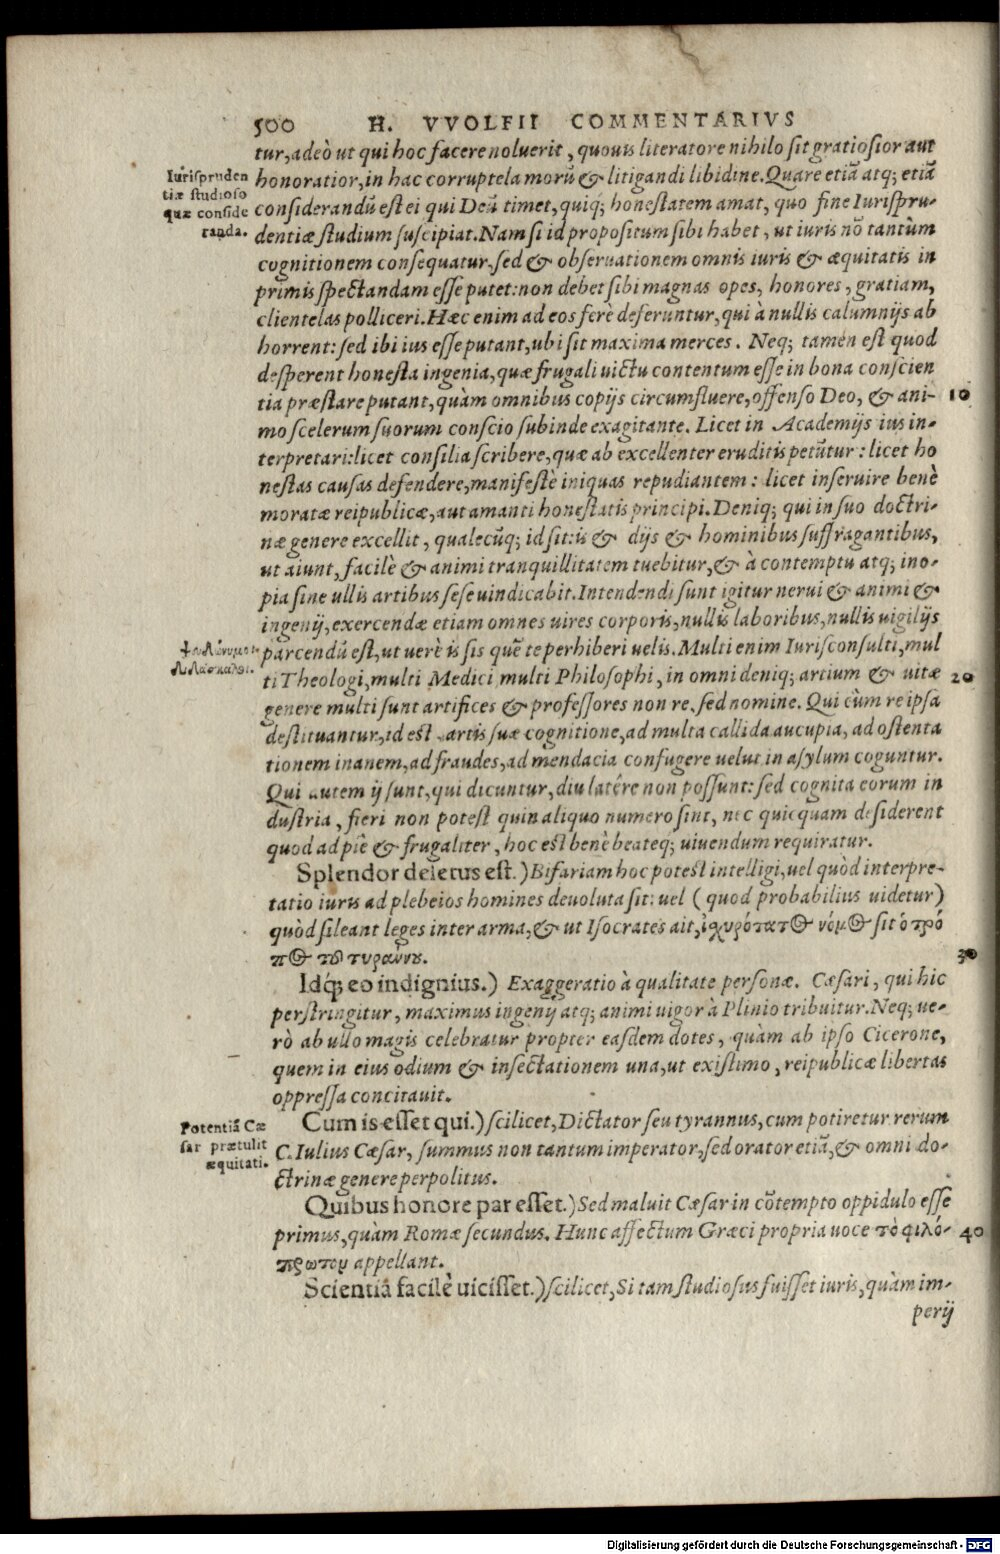 500 H. VVOLFII COMMENTARIVS
tur, adeò ut qui hoc facere noluerit, quouis literatore nihilo sit gratiosior aut
honoratior, in hac corruptela morũ & litigandi libidine. Quare etiã atq; etiã
considerandũ est ei qui Deũ timet, quiq; honestatem amat, quo fine Iurispru-
dentiæ studium suscipiat. Nam si id propositum sibi habet, ut iuris nõ tantùm
cognitionem consequatur, sed & obseruationem omnis iuris & æquitatis in
primis spectandam esse putet: non debet sibi magnas opes, honores, gratiam,
clientelas polliceri. Hæc enim ad eos ferè deferuntur, qui à nullis calumnijs ab
horrent: sed ibi ius esse putant, ubi sit maxima merces. Neq; tamen est quod
desperent honesta ingenia, quæ frugali uictu contentum esse in bona conscien
tia præstare putant, quàm omnibus copijs circumfluere, offenso Deo, & ani- 10
mo scelerum suorum conscio subinde exagitante. Licet in Academijs ius in-
terpretari: licet consilia scribere, quæ ab excellenter eruditis petũtur: licet ho
nestas causas defendere, manifestè iniquas repudiantem: licet inseruire benè
moratæ reipublicæ, aut amanti honestatis principi. Deniq; qui in suo doctri-
næ genere excellit, qualecũq; id sit: is & dijs & hominibus suffragantibus,
ut aiunt, facilè & animi tranquillitatem tuebitur, & à contemptu atq; ino-
pia sine ullis artibus sese uindicabit. Intendendi sunt igitur nerui & animi &
ingenij, exercendæ etiam omnes uires corporis, nullis laboribus, nullis uigilijs
parcendũ est, ut uerè is sis quẽ te perhiberi uelis. Multi enim Iurisconsulti, mul
ti Theologi, multi Medici multi Philosophi, in omni deniq; artium & uitæ 20
genere multi sunt artifices & professores non re, sed nomine. Qui cùm re ipsa
destituantur, id est artis suæ cognitione, ad multa callida aucupia, ad ostenta
tionem inanem, ad fraudes, ad mendacia confugere uelut in asylum coguntur.
Qui autem ij sunt, qui dicuntur, diu latére non possunt: sed cognita eorum in
dustria, fieri non potest quin aliquo numero sint, nec quicquam desiderent
quod ad piè & frugaliter, hoc est benè beateq; uiuendum requiratur.
Splendor deletus est.) Bifariam hoc potest intelligi, uel quòd interpre-
tatio iuris ad plebeios homines deuoluta sit: uel (quod probabilius uidetur)
quòd sileant leges inter arma, & ut Isocrates ait, ἰσχυρότατος νόμος sit ὁ τρό
πος τοῦ τυράννου. 30
Idq; eo indignius.) Exaggeratio à qualitate personæ. Cæsari, qui hic
perstringitur, maximus ingenij atq; animi uigor à Plinio tribuitur. Neq; ue-
rò ab ullo magis celebratur propter easdem dotes, quàm ab ipso Cicerone,
quem in eius odium & insectationem una, ut existimo, reipublicæ libertas
oppressa concitauit.
Cum is esset qui.) scilicet, Dictator seu tyrannus, cum potiretur rerum
C. Iulius Cæsar, summus non tantum imperator, sed orator etiã, & omni do-
ctrinæ genere perpolitus.
Quibus honore par esset.) Sed maluit Cæsar in cõtempto oppidulo esse
primus, quàm Romæ secundus. Hunc affectum Græci propria uoce τὸ φιλό- 40
πρωτον appellant.
Scientiâ facilè uicisset.) scilicet, Si tam studiosus fuisset iuris, quàm im-
perij
Iurispruden
tiæ studioso
quæ conside
randa.
ψευδώνυμοι
διδάσκαλοι.
Potentiã Cæ
sar prætulit
æquitati.
Digitalisierung gefördert durch die Deutsche Forschungsgemeinschaft - DFG